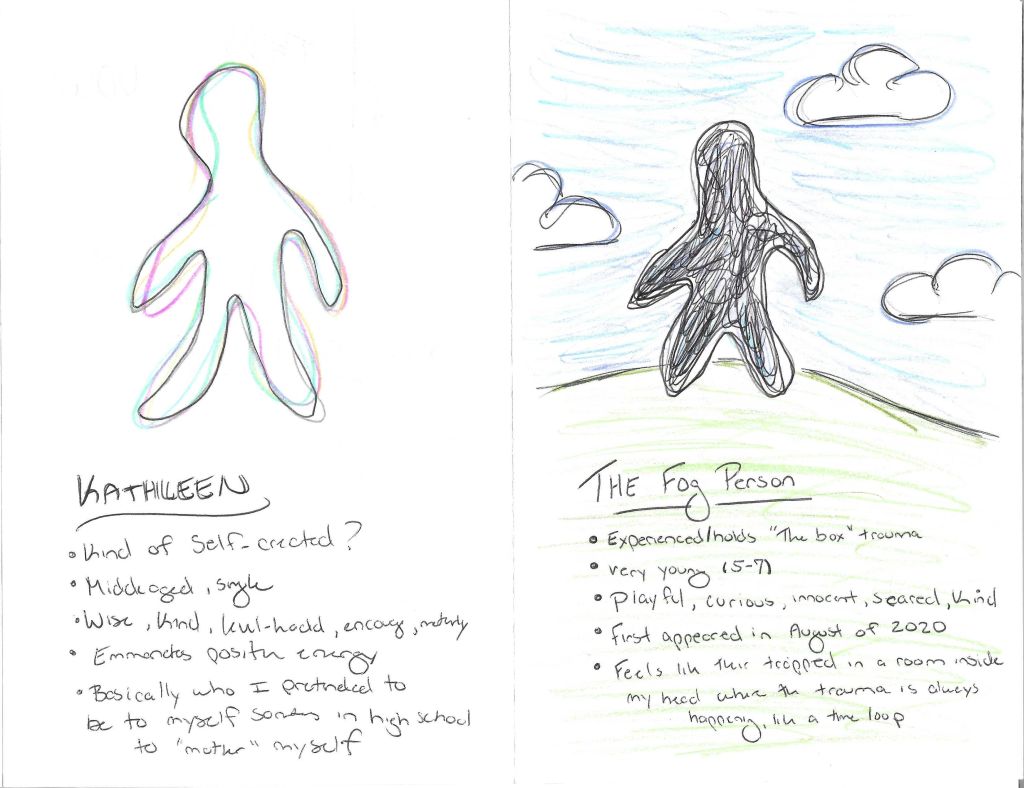 KATHILEEN
• Kind of self-created?
• Middleaged, single
• Wise, Kind, level-headed, encouraging, motherly
• Emmanates positive energy
• Basically who I pretended to
be to myself sometimes in high school
to "mother" myself
THE Fog Person
• Experienced/holds "The box" trauma
• very young (5-7)
• Playful, curious, innocent, scared, Kind
• First appeared in August of 2020
• Feels like their trapped in a room inside
my head where the trauma is always
happening, like a time loop